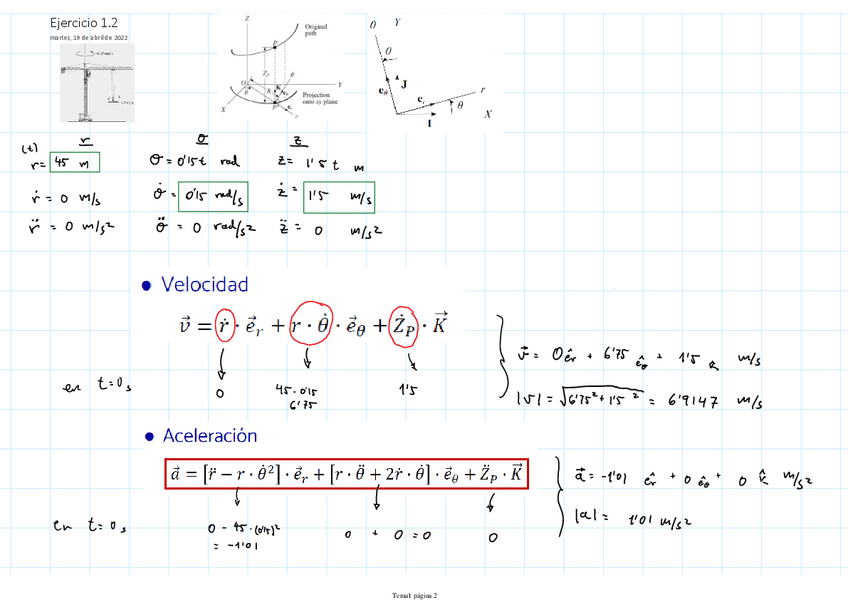 Ejercicio 1.2
martes, 19 de abril de 2022
Z
Original
path
P
Z_P
O
θ
Y
X
r
Projection
onto xy plane
θ Y
θ
e_θ
J
e_r
r
θ
X
I
(t) r θ z
r = 45 m θ = 0'15 t rad z = 1'5 t m
ṙ = 0 m/s θ̇ = 0'15 rad/s ż = 1'5 m/s
r̈ = 0 m/s² θ̈ = 0 rad/s² z̈ = 0 m/s²
• Velocidad
v⃗ = ṙ · e⃗_r + r · θ̇ · e⃗_θ + Ż_P · K⃗
en t=0s
0
45·0'15
6'75
1'5
v⃗ = 0 ê_r + 6'75 ê_θ + 1'5 k̂ m/s
|v| = √6'75² + 1'5² = 6'9147 m/s
• Aceleración
a⃗ = [r̈ − r · θ̇²] · e⃗_r + [r · θ̈ + 2ṙ · θ̇] · e⃗_θ + Z̈_P · K⃗
en t=0s
0 - 45·(0'15)²
= -1'01
0 + 0 = 0
0
a⃗ = -1'01 ê_r + 0 ê_θ + 0 k̂ m/s²
|a| = 1'01 m/s²
Tema1 página 2